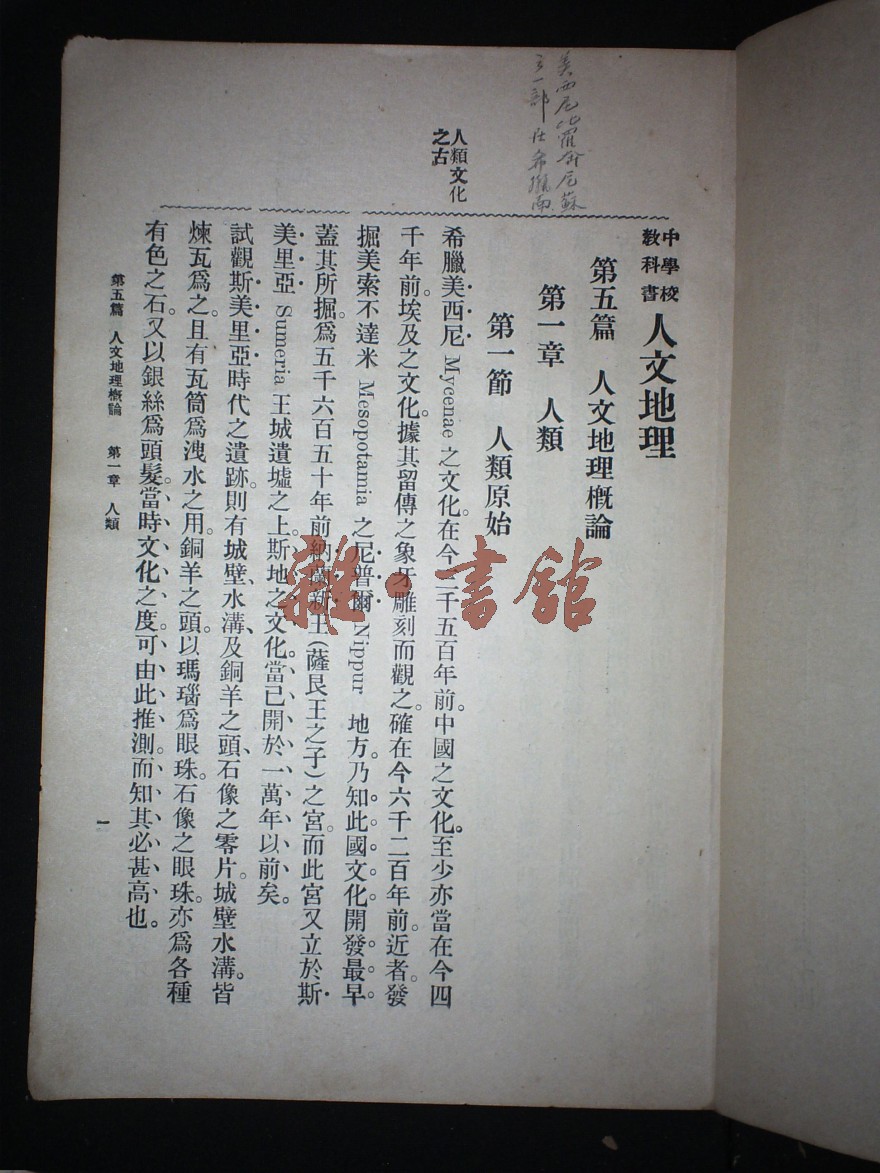 中學校
教科書 人文地理
第五篇 人文地理概論
第一章 人類
第一節 人類原始
人類文化
之古
希臘美西尼 Mycenae 之文化。在今三千五百年前。中國之文化。至少亦當在今四
千年前。埃及之文化。據其留傳之象牙雕刻而觀之。確在今六千二百年前。近者發
掘美索不達米 Mesopotamia 之尼普爾 Nippur 地方。乃知此國文化開發最早。
蓋其所掘。爲五千六百五十年前納蘭新王(薩艮王之子)之宮。而此宮又立於斯
美里亞 Sumeria 王城遺墟之上。斯地之文化。當已開於一萬年以前矣。
試觀斯美里亞時代之遺跡。則有城壁、水溝、及銅羊之頭、石像之零片。城壁水溝。皆
煉瓦爲之。且有瓦筒爲洩水之用。銅羊之頭。以瑪瑙爲眼珠。石像之眼珠。亦爲各種
有色之石。又以銀絲爲頭髮。當時文化之度。可由此推測。而知其必甚高也。
第五篇 人文地理概論 第一章 人類
一
美西尼比羅奔尼蘇
之一部 在希臘南
雜·書館